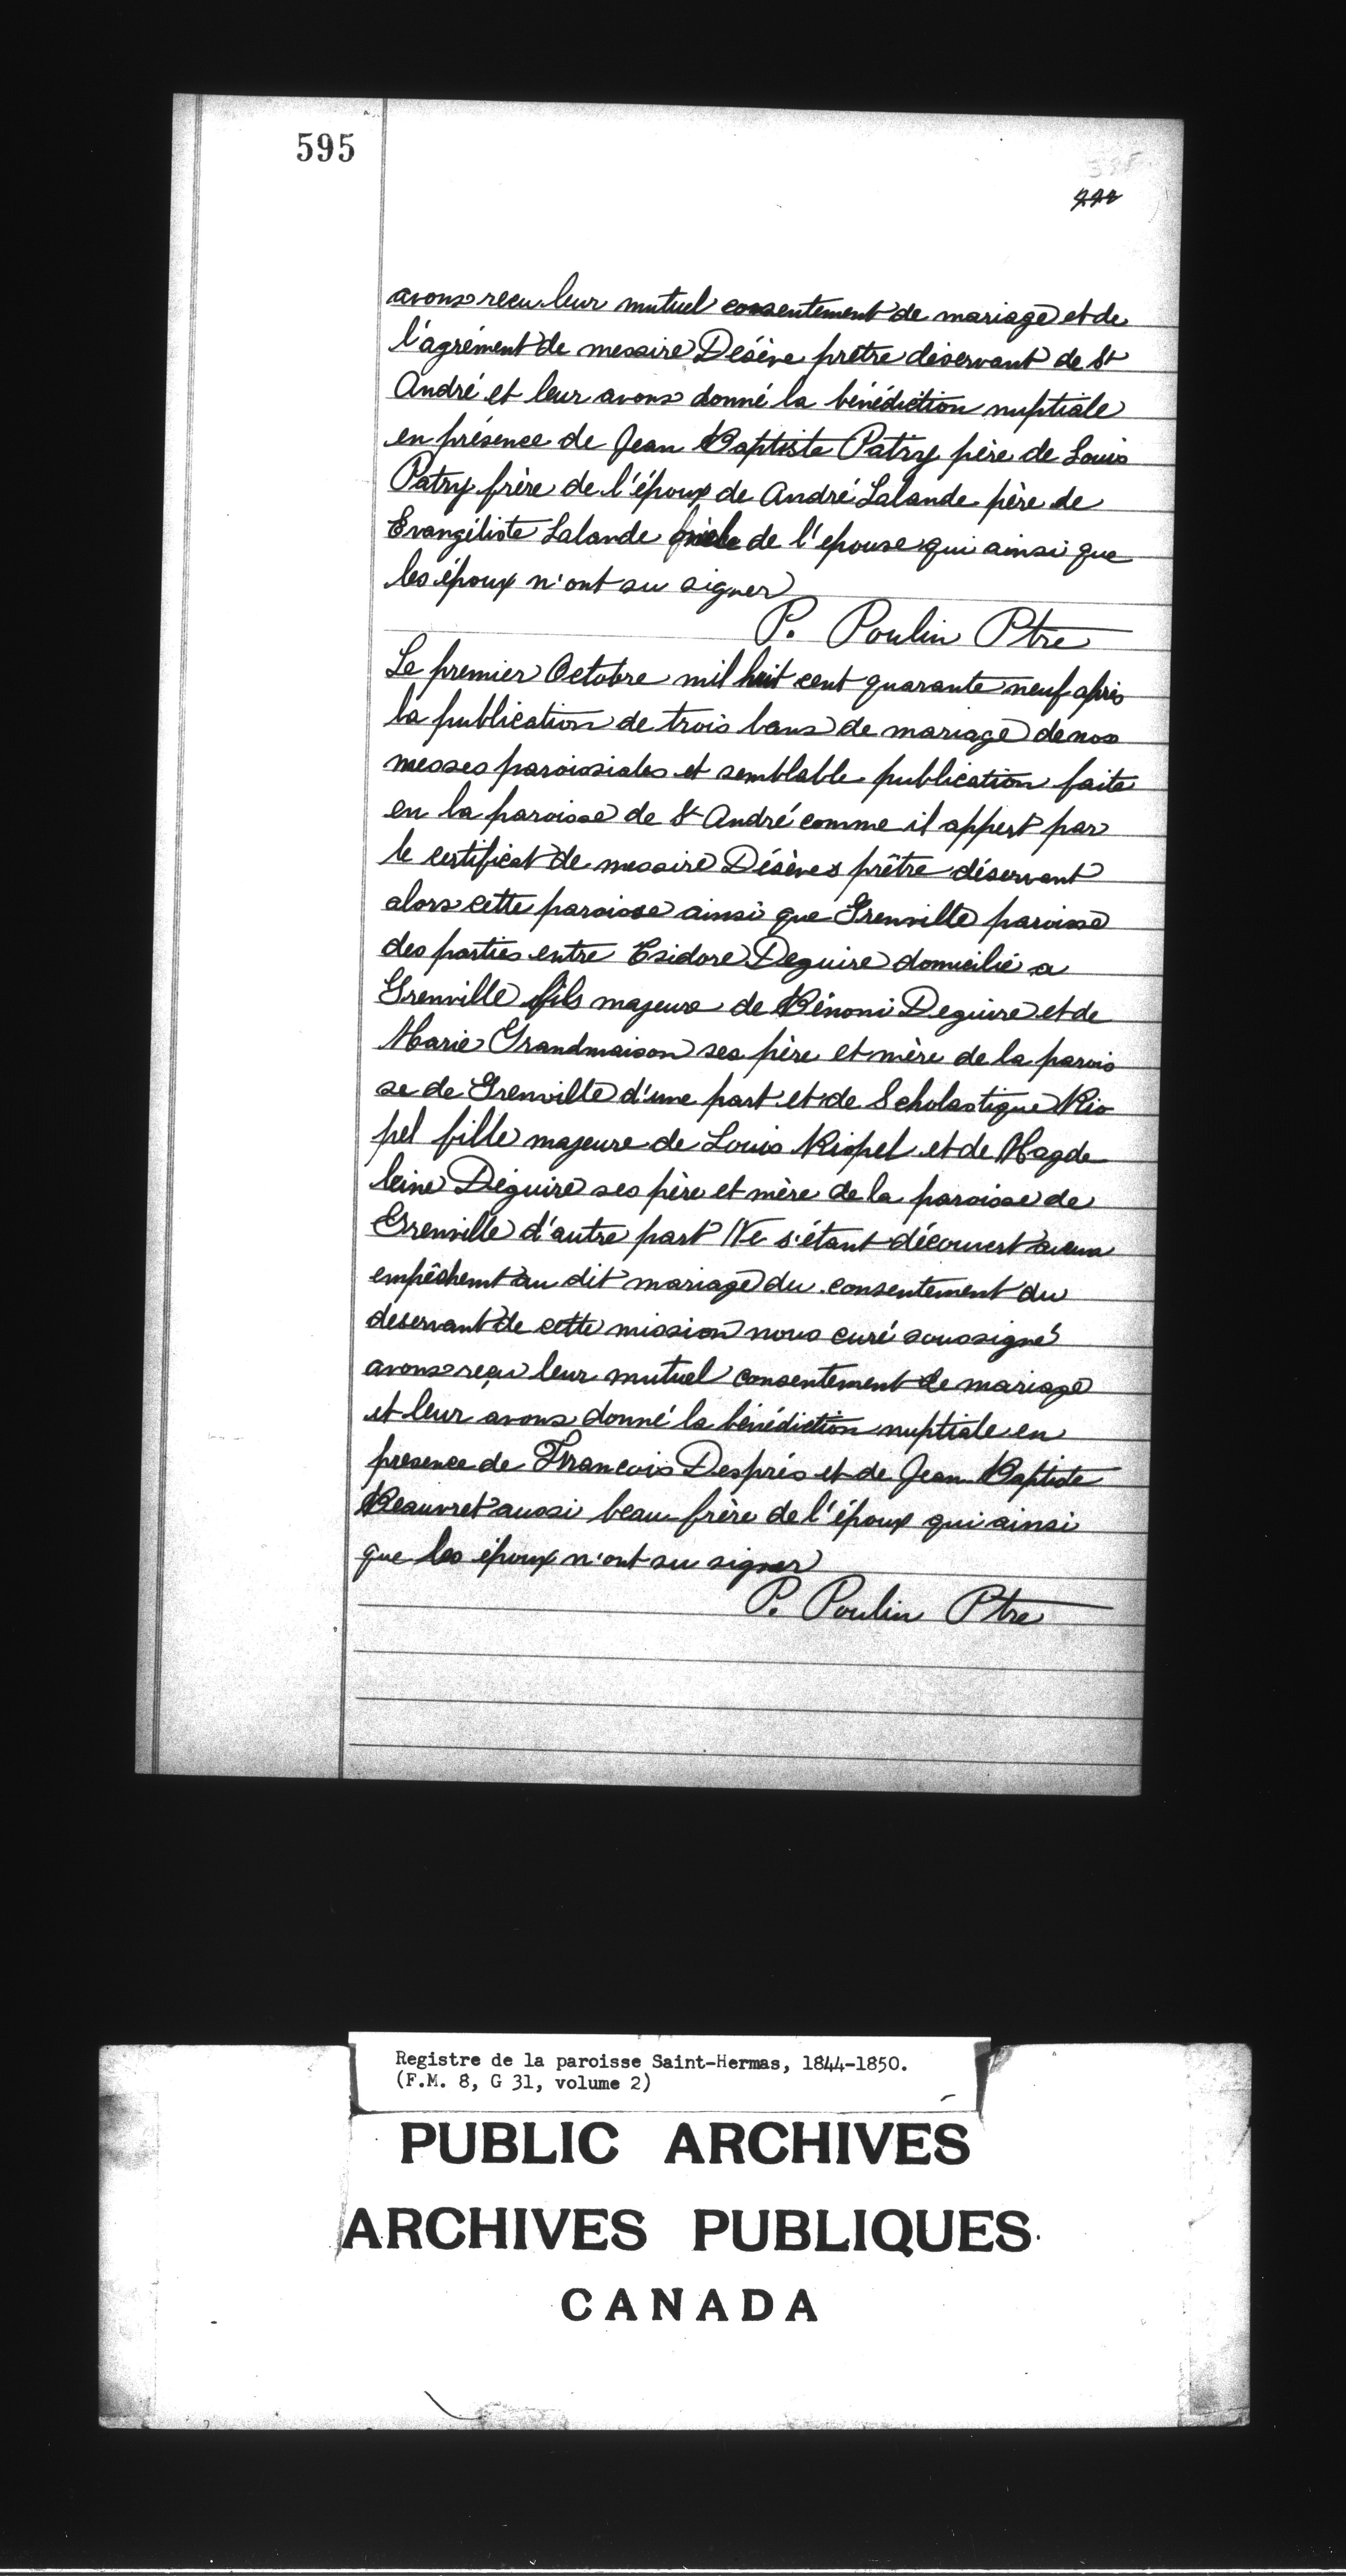 595
avons recu leur mutuel consentement de mariage et de
l'agrément de messire Désève prêtre déservant de St
André et leur avons donné la bénédiction nuptiale
en présence de Jean Baptiste Patry père de Louis
Patry frère de l'époux de André Lalande père de
Evangéliste Lalande de l'epouse qui ainsi que
les époux n'ont su signer
P. Poulin Ptre
Le premier Octobre mil huit cent quarante neuf après
la publication de trois bans de mariage de nos
messes paroissiales et semblable publication faite
en la paroisse de St André comme il appert par
le certificat de messire Désèves prêtre déservant
alors cette paroisse ainsi que Grenville paroisse
des parties entre Esidore Deguire domicilié a
Grenville fils majeure de Bénoni Deguire et de
Marie Grandmaison ses père et mère de la parois
se de Grenville d'une part et de Scholastique Rio
pel fille majeure de Louis Riopel et de Magde
leine Déguire ses père et mère de la paroisse de
Grenville d'autre part Ne s'étant découvert aucun
empêchemt au dit mariage du consentement du
deservant de cette mission nous curé soussigné
avons reçu leur mutuel consentement de mariage
et leur avons donné la bénédiction nuptiale en
presence de Francois Després et de Jean Baptiste
Beauvret aussi beau frère de l'époux qui ainsi
que les époux n'ont su signer
P. Poulin Ptre
Registre de la paroisse Saint-Hermas, 1844-1850.
(F.M. 8, G 31, volume 2)
PUBLIC ARCHIVES
ARCHIVES PUBLIQUES
CANADA